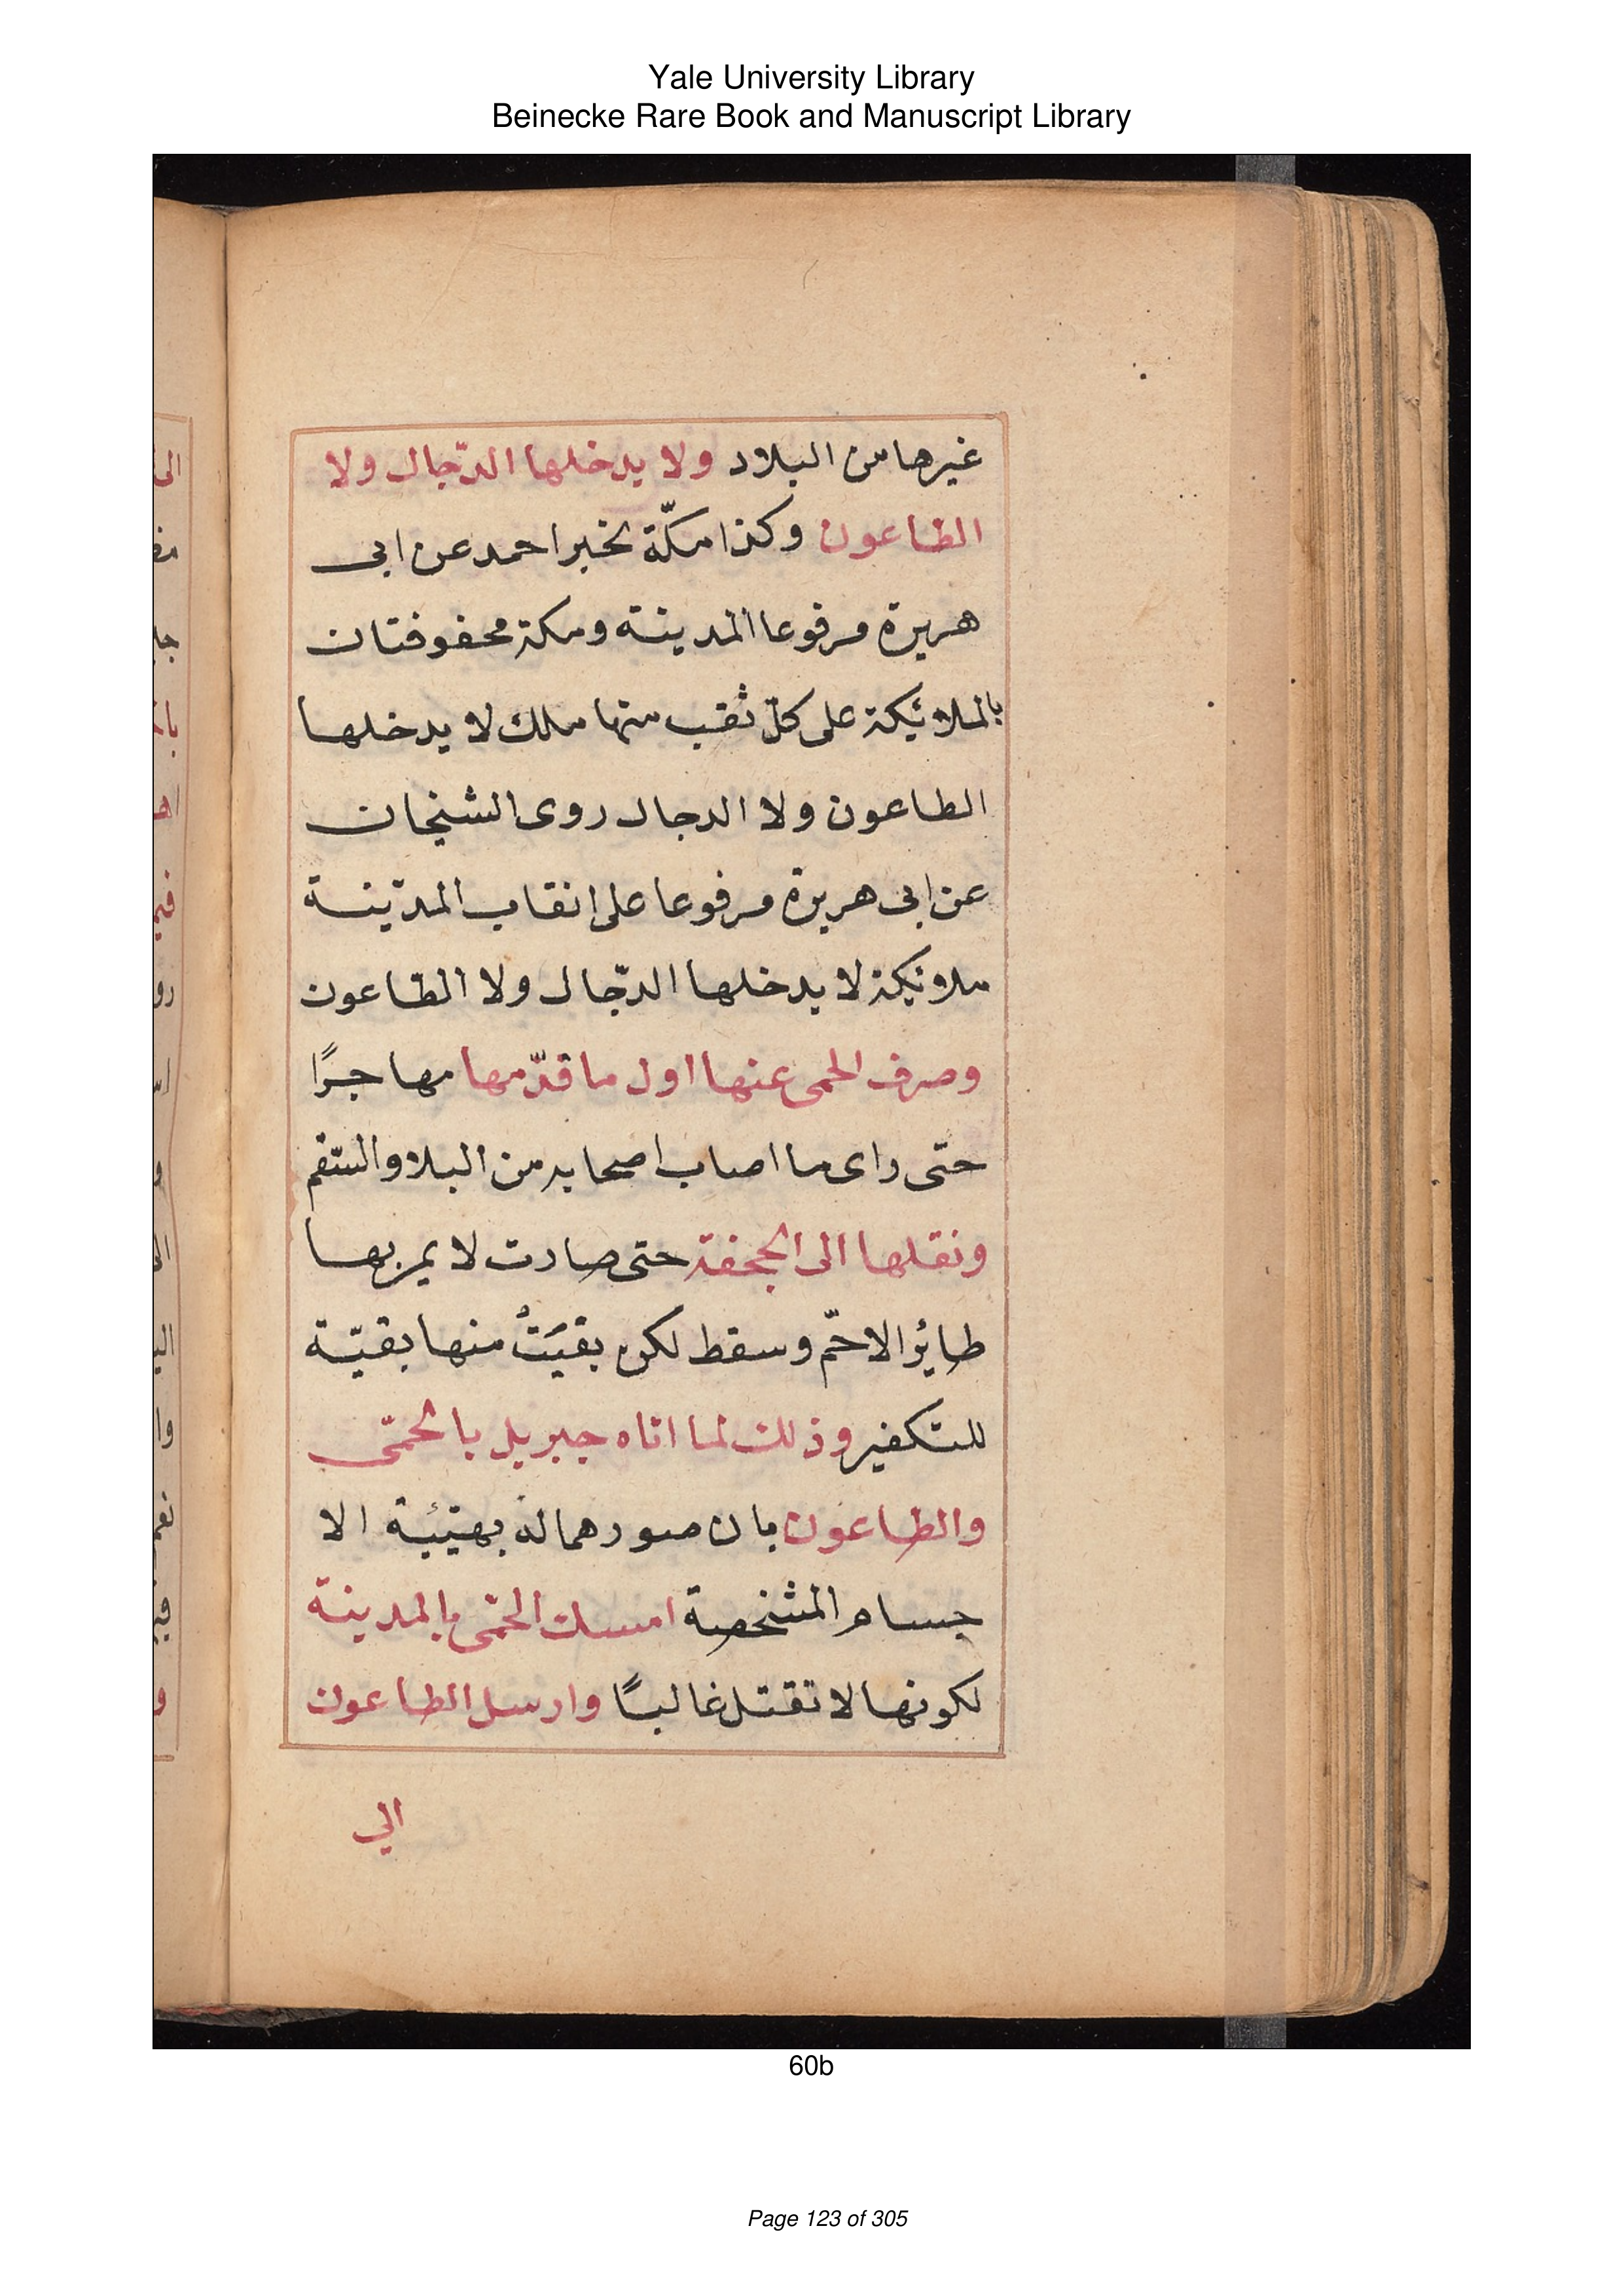 Yale University Library
Beinecke Rare Book and Manuscript Library
غيرها من البلاد ولا يدخلها الدّجال ولا
الطاعون وكذا مكّة لخبر احمد عن ابى
هريرة مرفوعا المدينة ومكة محفوفتان
بالملائيكة على كلّ ثقب منها ملك لا يدخلها
الطاعون ولا الدجال روى الشيخان
عن ابى هريرة مرفوعا على انقاب المدينة
ملائيكة لا يدخلها الدّجال ولا الطاعون
وصرف الحمى عنها اول ما قدّمها مهاجرًا
حتى راى ما اصاب اصحابه من البلا والسّقم
ونقلها الى الجحفة حتى صارت لا يمر بها
طايئر الا حمّ وسقط لكن بقيَتْ منها بقيّة
للتكفير وذلك لما اتاه جبريل بالحمّى
والطاعون بان صورهما له بهيئة الا
جسام المشخصة امسك الحمّى بالمدينة
لكونها لا تقتل غالبًا وارسل الطاعون
الي
60b
Page 123 of 305